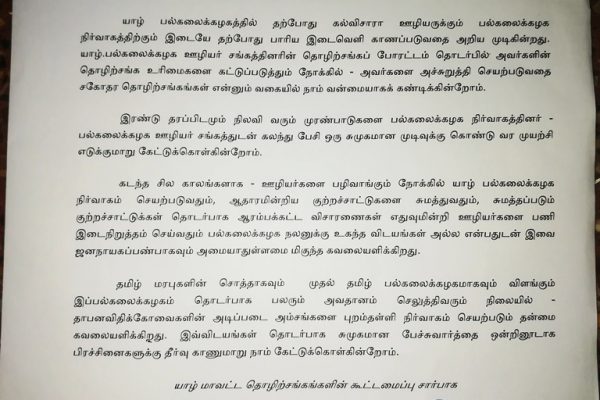 யாழ் பல்கலைக்கழகத்தில் தற்போது கல்விசாரா ஊழியருக்கும் பல்கலைக்கழக
நிர்வாகத்திற்கும் இடையே தற்போது பாரிய இடைவெளி காணப்படுவதை அறிய முடிகின்றது.
யாழ்.பல்கலைக்கழக ஊழியர் சங்கத்தினரின் தொழிற்சங்கப் போரட்டம் தொடர்பில் அவர்களின்
தொழிற்சங்க உரிமைகளை கட்டுப்படுத்தும் நோக்கில் - அவர்களை அச்சுறுத்தி செயற்படுவதை
சகோதர தொழிற்சங்கங்கள் என்னும் வகையில் நாம் வன்மையாகக் கண்டிக்கின்றோம்.
இரண்டு தரப்பிடமும் நிலவி வரும் முரண்பாடுகளை பல்கலைக்கழக நிர்வாகத்தினர் -
பல்கலைக்கழக ஊழியர் சங்கத்துடன் கலந்து பேசி ஒரு சுமுகமான முடிவுக்கு கொண்டு வர முயற்சி
எடுக்குமாறு கேட்டுக்கொள்கின்றோம்.
கடந்த சில காலங்களாக - ஊழியர்களை பழிவாங்கும் நோக்கில் யாழ் பல்கலைக்கழக
நிர்வாகம் செயற்படுவதும், ஆதாரமின்றிய குற்றச்சாட்டுகளை சுமத்துவதும், சுமத்தப்படும்
குற்றச்சாட்டுக்கள் தொடர்பாக ஆரம்பக்கட்ட விசாரணைகள் எதுவுமின்றி ஊழியர்களை பணி
இடைநிறுத்தம் செய்வதும் பல்கலைக்கழக நலனுக்கு உகந்த விடயங்கள் அல்ல என்பதுடன் இவை
ஜனநாயகப்பண்பாகவும் அமையாதுள்ளமை மிகுந்த கவலையளிக்கிறது.
தமிழ் மரபுகளின் சொத்தாகவும் முதல் தமிழ் பல்கலைக்கழகமாகவும் விளங்கும்
இப்பல்கலைக்கழகம் தொடர்பாக பலரும் அவதானம் செலுத்திவரும் நிலையில் -
தாபனவிதிக்கோவைகளின் அடிப்படை அம்சங்களை புறம்தள்ளி நிர்வாகம் செயற்படும் தன்மை
கவலையளிக்கிறது. இவ்விடயங்கள் தொடர்பாக சுமுகமான பேச்சுவார்த்தை ஒன்றினூடாக
பிரச்சினைகளுக்கு தீர்வு காணுமாறு நாம் கேட்டுக்கொள்கின்றோம்.
யாழ் மாவட்ட தொழிற்சங்கங்களின் கூட்டமைப்பு சார்பாக